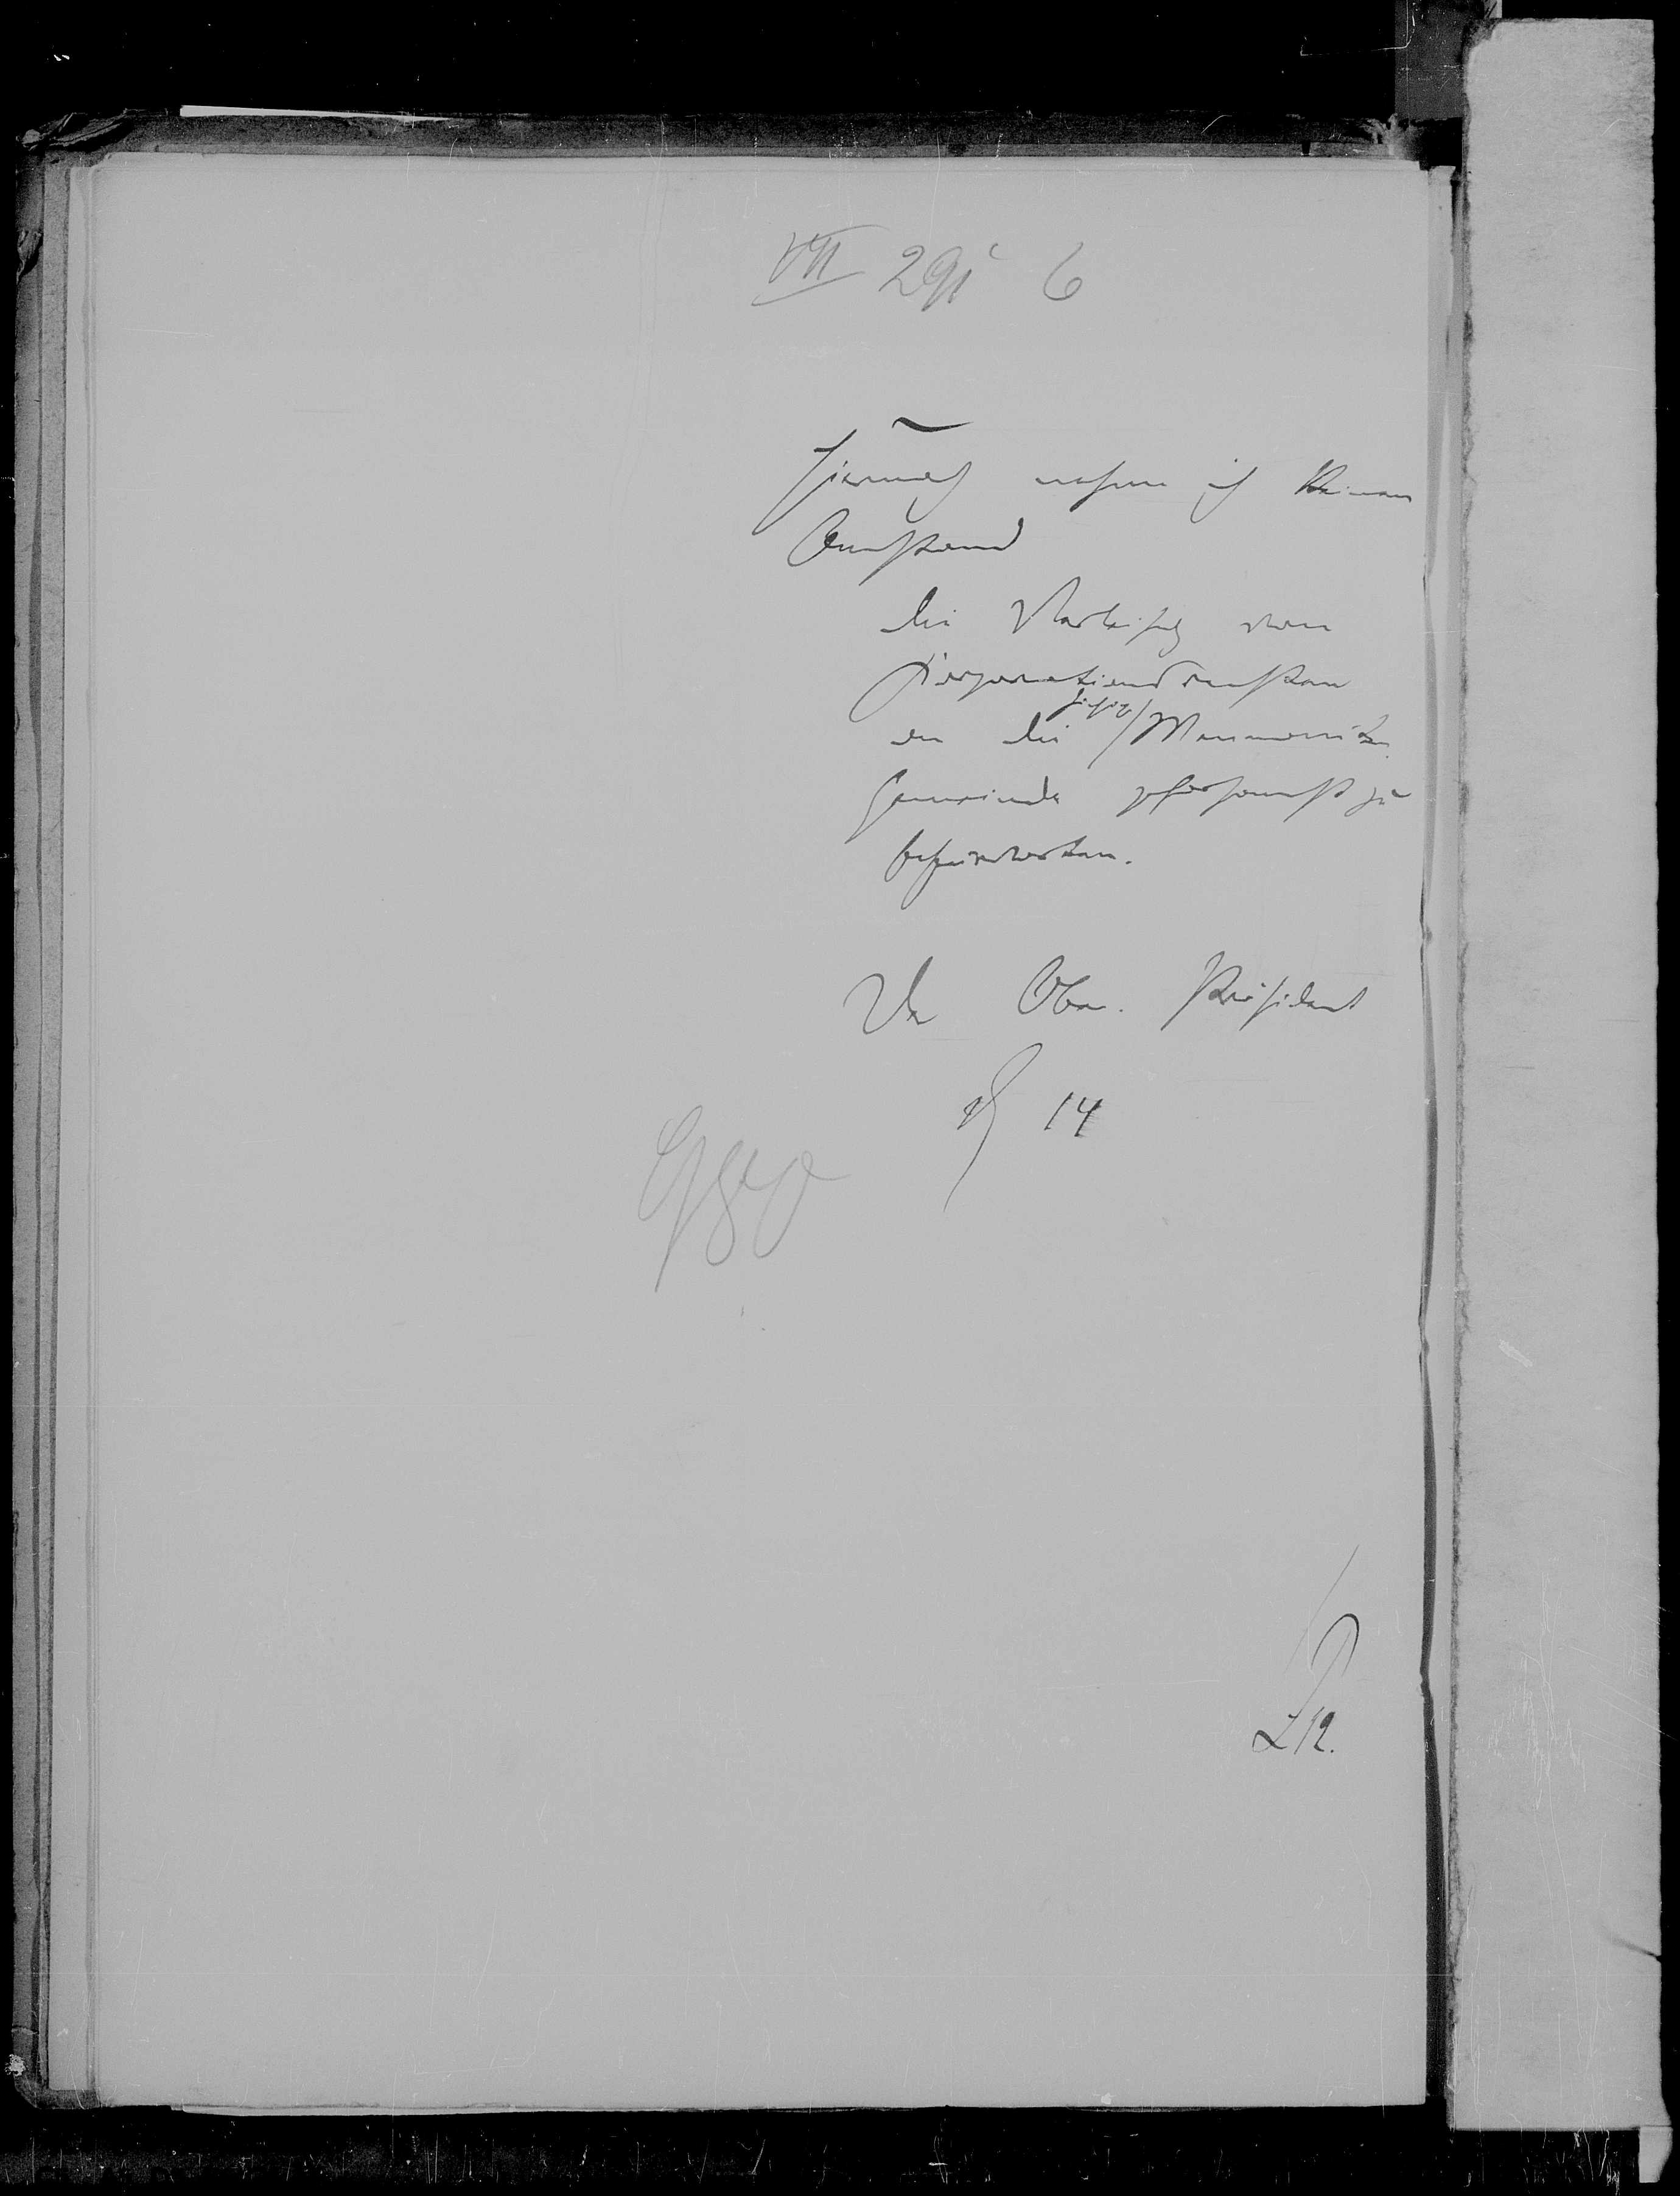 VII 291 6
Hiernach nehme ich keinen
Anstand
die Verleihg von
Korporationsrechten
an die hiesige Mennoniten
Gemeinde gehorsamst zu
befürworten.
Der Ober. Präsident
14